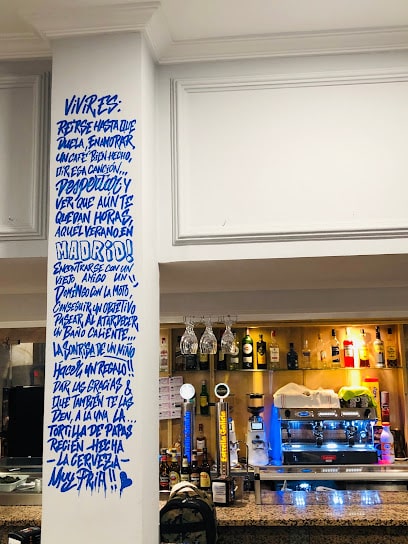 ViViR ES:
REÍRSE HASTA QUE
DUELA, ENAMORAR
UN CAFÉ BIEN HECHO,
OIR ESA CANCIÓN...
DESPERTAR Y
VER QUE AÚN TE
QUEDAN HORAS,
AQUEL VERANO EN
MADRID!
ENCONTRARSE CON UN
VIEJO AMIGO UN
DOMINGO CON LA MOTO,
CONSEGUIR UN OBJETIVO
PASEAR AL ATARDECER
UN BAÑO CALIENTE...
LA SONRISA DE UN NIÑO
HACER UN REGALO!!
DAR LAS GRACIAS &
QUE TAMBIÉN TE LAS
DEN, A LA UNA LA...
TORTILLA DE PAPAS
RECIÉN-HECHA
-LA CERVEZA-
MUY FRIA!!